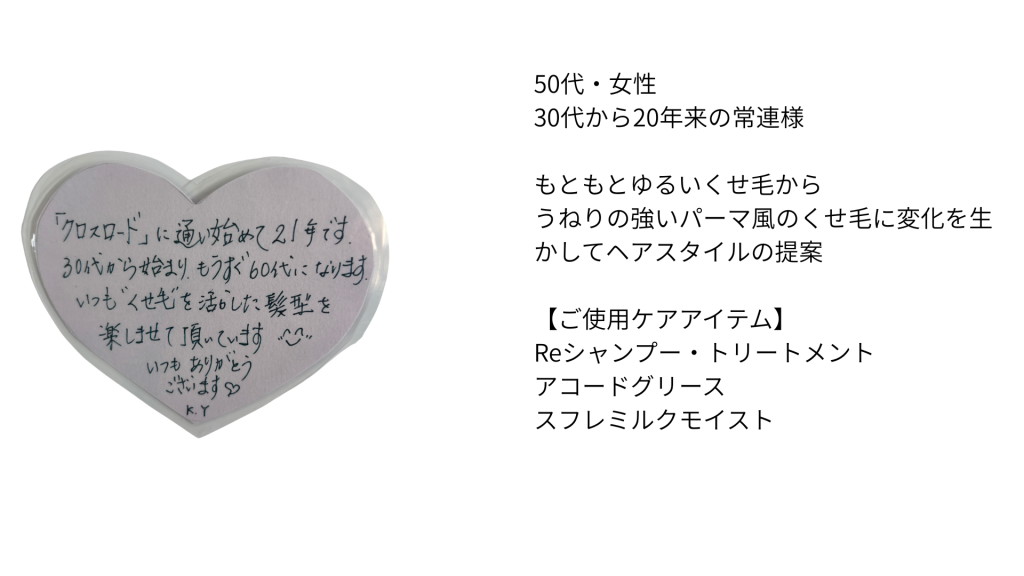 「クロスロード」に通い始めて21年です。
30代から始まり、もうすぐ60代になります。
いつも"くせ毛"を活らした髪型を
楽しませて頂いています
いつも ありがとう
ございます♡
K.Y
50代・女性
30代から20年来の常連様
もともとゆるいくせ毛から
うねりの強いパーマ風のくせ毛に変化を生
かしてヘアスタイルの提案
【ご使用ケアアイテム】
Reシャンプー・トリートメント
アコードグリース
スフレミルクモイスト